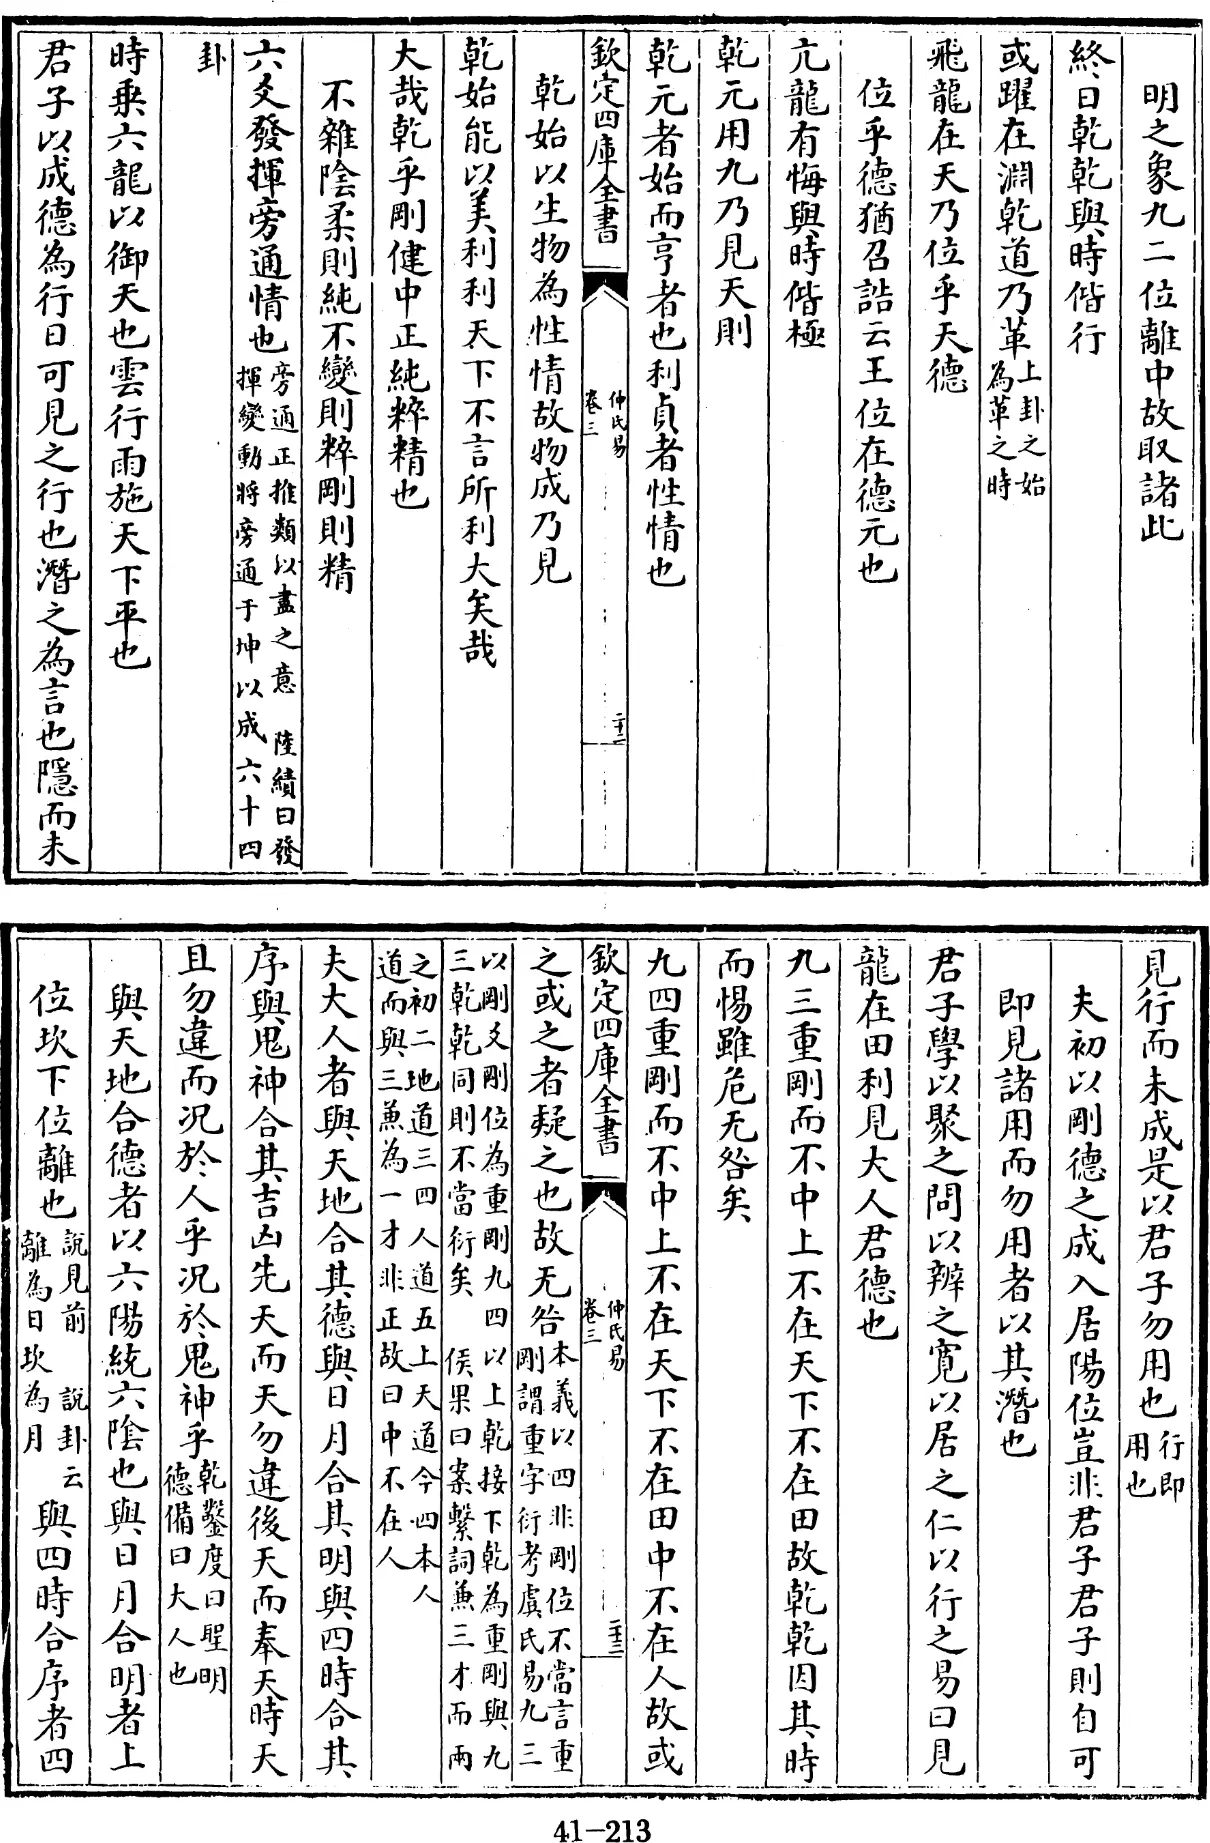 明之象九二位離中故取諸此
終日乾乾與時偕行
或躍在淵乾道乃革上卦之始為革之時
飛龍在天乃位乎天德
位乎德猶召誥云王位在德元也
亢龍有悔與時偕極
乾元用九乃見天則
乾元者始而亨者也利貞者性情也
欽定四庫全書 仲氏易卷三 二十二
乾始以生物為性情故物成乃見
乾始能以美利利天下不言所利大矣哉
大哉乾乎剛健中正純粹精也
不雜陰柔則純不變則粹剛則精
六爻發揮旁通情也旁通正推類以盡之意 陸績曰發揮變動將旁通于坤以成六十四
卦
時乘六龍以御天也雲行雨施天下平也
君子以成德為行日可見之行也潛之為言也隱而未
見行而未成是以君子勿用也行即用也
夫初以剛德之成入居陽位豈非君子君子則自可
即見諸用而勿用者以其潛也
君子學以聚之問以辨之寬以居之仁以行之易曰見
龍在田利見大人君德也
九三重剛而不中上不在天下不在田故乾乾因其時
而惕雖危无咎矣
九四重剛而不中上不在天下不在田中不在人故或
欽定四庫全書 仲氏易卷三 二十三
之或之者疑之也故无咎本義以四非剛位不當言重剛謂重字衍考虞氏易九三
以剛爻剛位為重剛九四以上乾接下乾為重剛與九三乾乾同則不當衍矣 侯果曰案繫詞兼三才而兩
之初二地道三四人道五上天道今四本人道而與三兼為一才非正故曰中不在人
夫大人者與天地合其德與日月合其明與四時合其
序與鬼神合其吉凶先天而天勿違後天而奉天時天
且勿違而况於人乎况於鬼神乎乾鑿度曰聖明德備曰大人也
與天地合德者以六陽統六陰也與日月合明者上
位坎下位離也說見前 說卦云離為日坎為月與四時合序者四
41-213